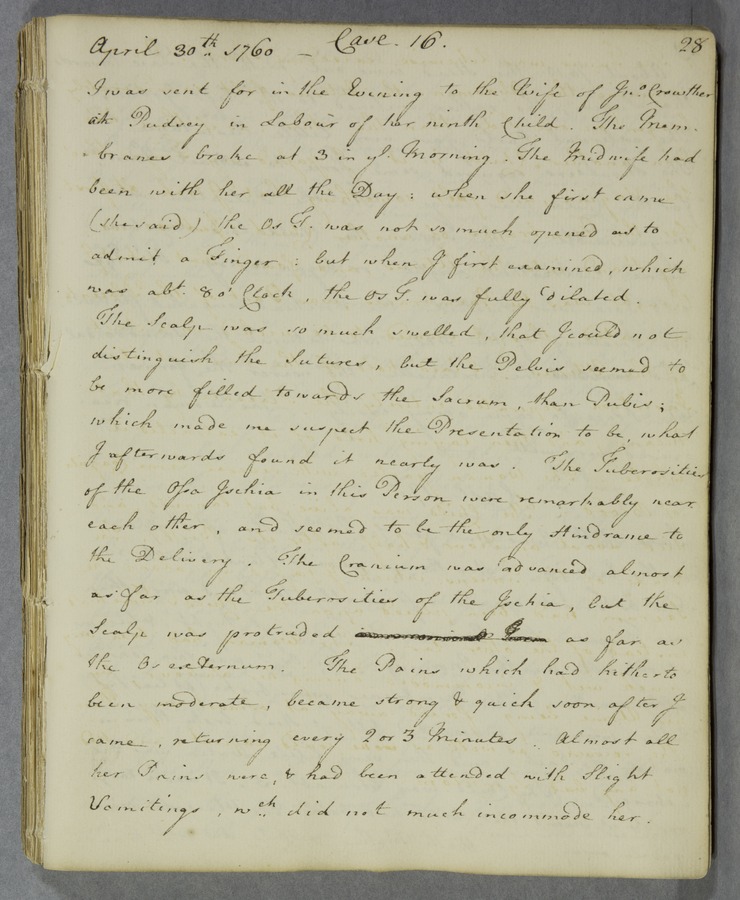 April 30th 1760 — Case. 16. 28
I was sent for in the Evening to the Wife of Jno. Crowther
at Pudsey in Labour of her ninth Child. The Mem-
branes broke at 3 in ye. Morning. The Midwife had
been with her all the Day: when she first came
(she said) the Os T. was not so much opened as to
admit a Finger: but when I first examined, which
was abt. 8 o'Clock, the Os T. was fully dilated.
The Scalp was so much swelled, that I could not
distinguish the Sutures, but the Pelvis seemed to
be more filled towards the Sacrum, than Pubis;
which made me suspect the Presentation to be, what
I afterwards found it nearly was. The Tuberosities
of the Ossa Ischia in this Person were remarkably near
each other, and seemed to be the only Hindrance to
the Delivery. The Cranium was advanced almost
as far as the Tuberosities of the Ischia, but the
Scalp was protruded as far as
the Os externum. The Pains which had hitherto
been moderate, became strong & quick soon after I
came, returning every 2 or 3 Minutes. Almost all
her Pains were, & had been attended with Slight
Vomitings, wch did not much incommode her.